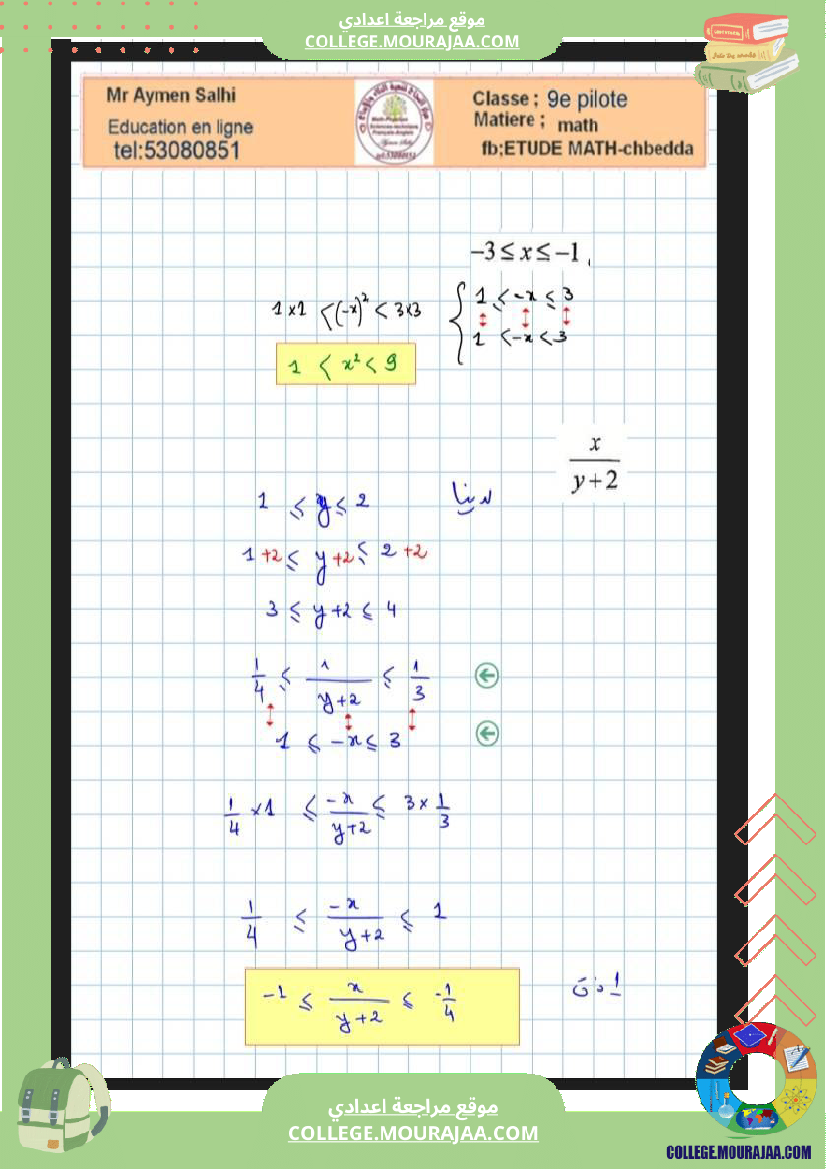 موقع مراجعة اعدادي
COLLEGE.MOURAJAA.COM
Mr Aymen Salhi
Education en ligne
tel:53080851
Classe ; 9e pilote
Matiere ; math
fb;ETUDE MATH-chbedda
−3 ≤ x ≤ −1 ,
1 ≤ -x ≤ 3
1 < -x < 3
1×1 < (-x)² < 3×3
1 < x² < 9
x / (y+2)
لدينا
1 ≤ y ≤ 2
1 +2 ≤ y +2 ≤ 2 +2
3 ≤ y+2 ≤ 4
1/4 ≤ 1/(y+2) ≤ 1/3
1 ≤ -x ≤ 3
1/4 ×1 ≤ -x/(y+2) ≤ 3× 1/3
1/4 ≤ -x/(y+2) ≤ 1
إذن
-1 ≤ x/(y+2) ≤ -1/4
موقع مراجعة اعدادي
COLLEGE.MOURAJAA.COM
COLLEGE.MOURAJAA.COM